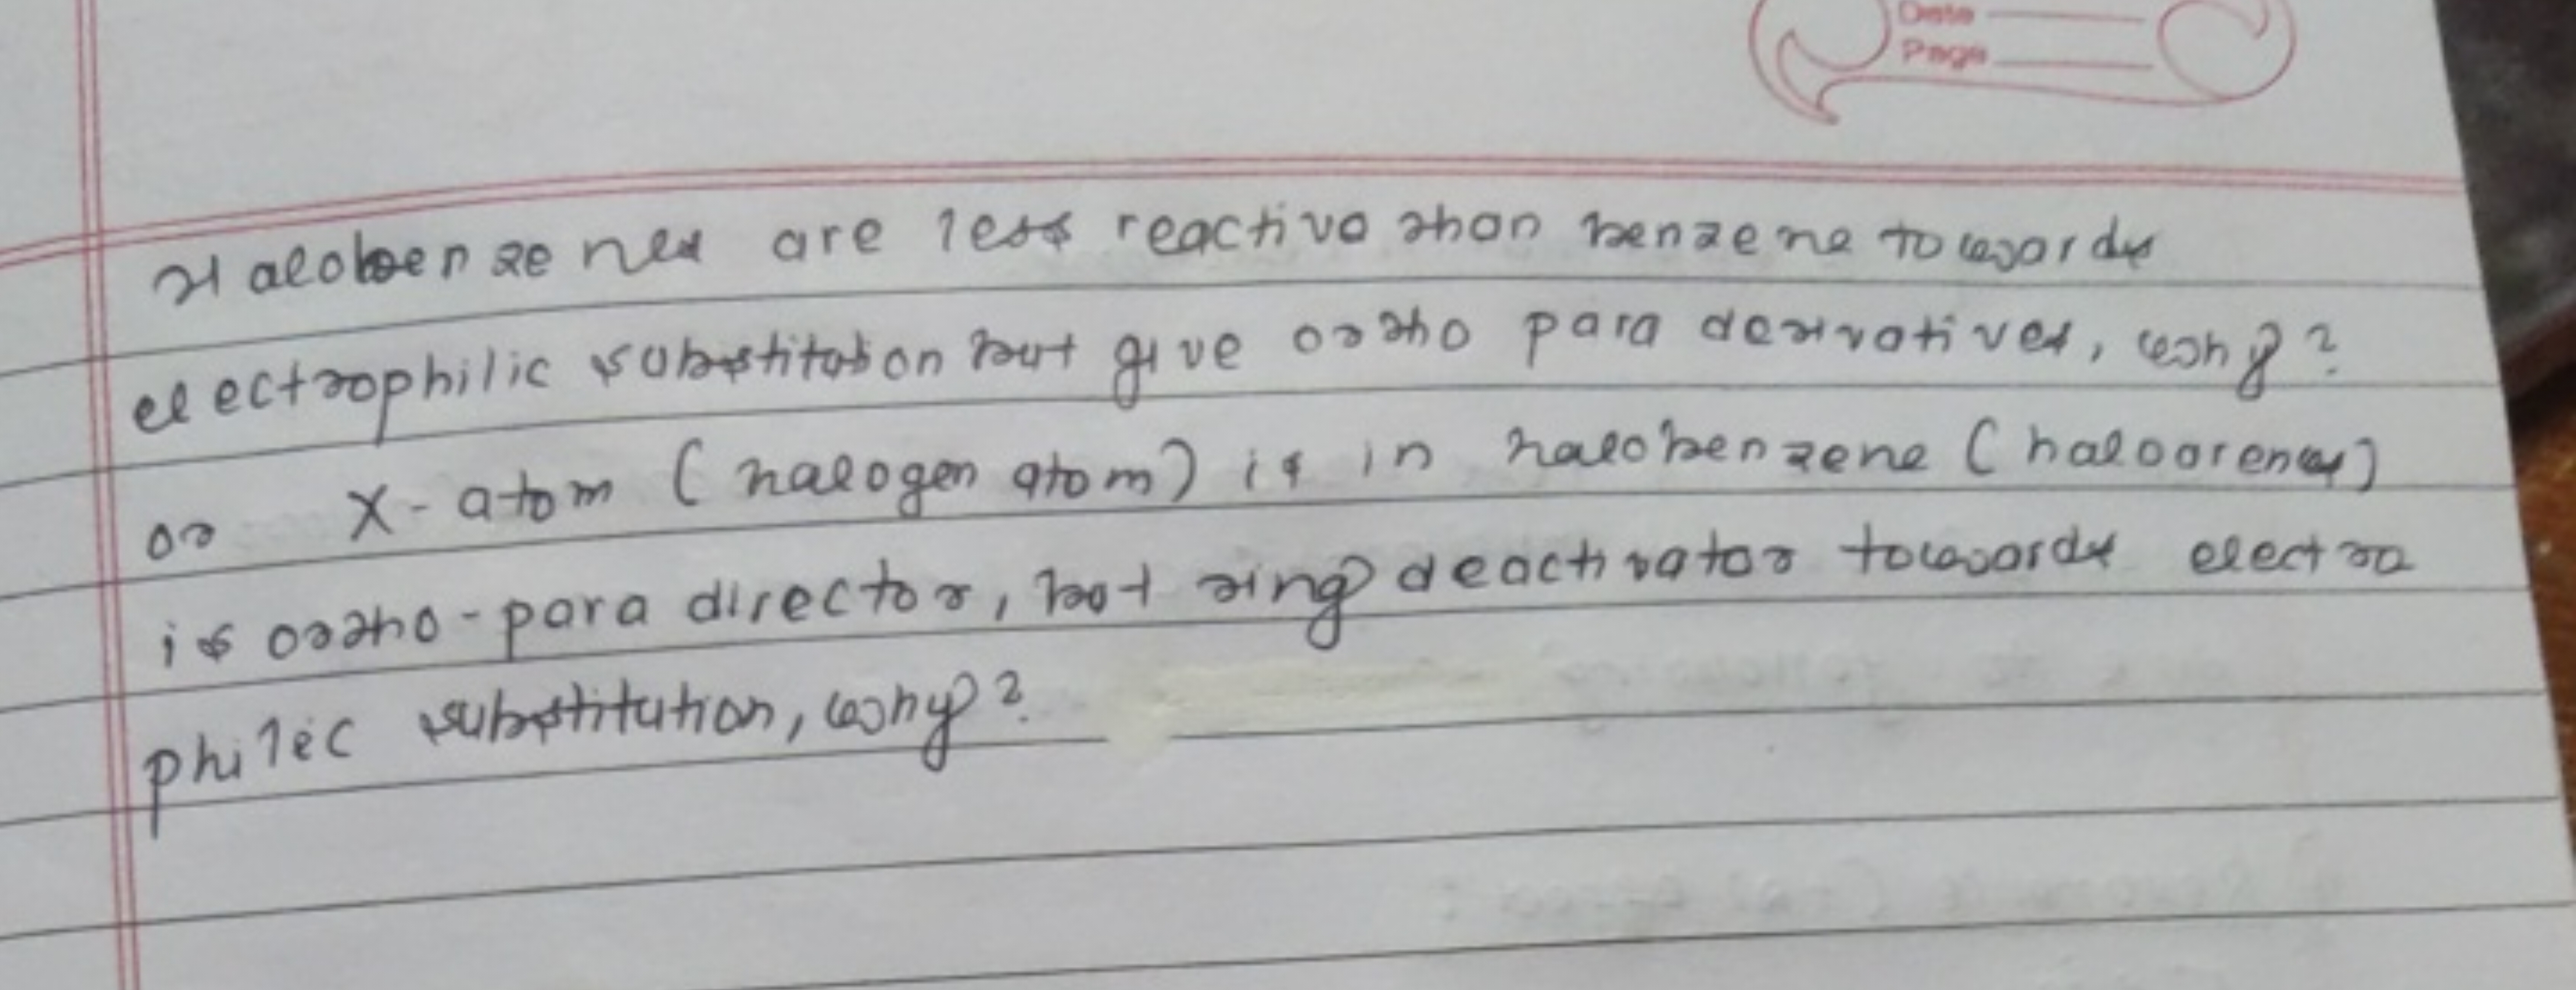 Date
Page
Halobenzenes are less reactive than benzene towards
electrophilic substitution but give ortho para derivatives, why?
or X-atom (halogen atom) is in halobenzene (haloarenes)
is ortho-para director, but ring deactivator towards electro
philic substitution, why?